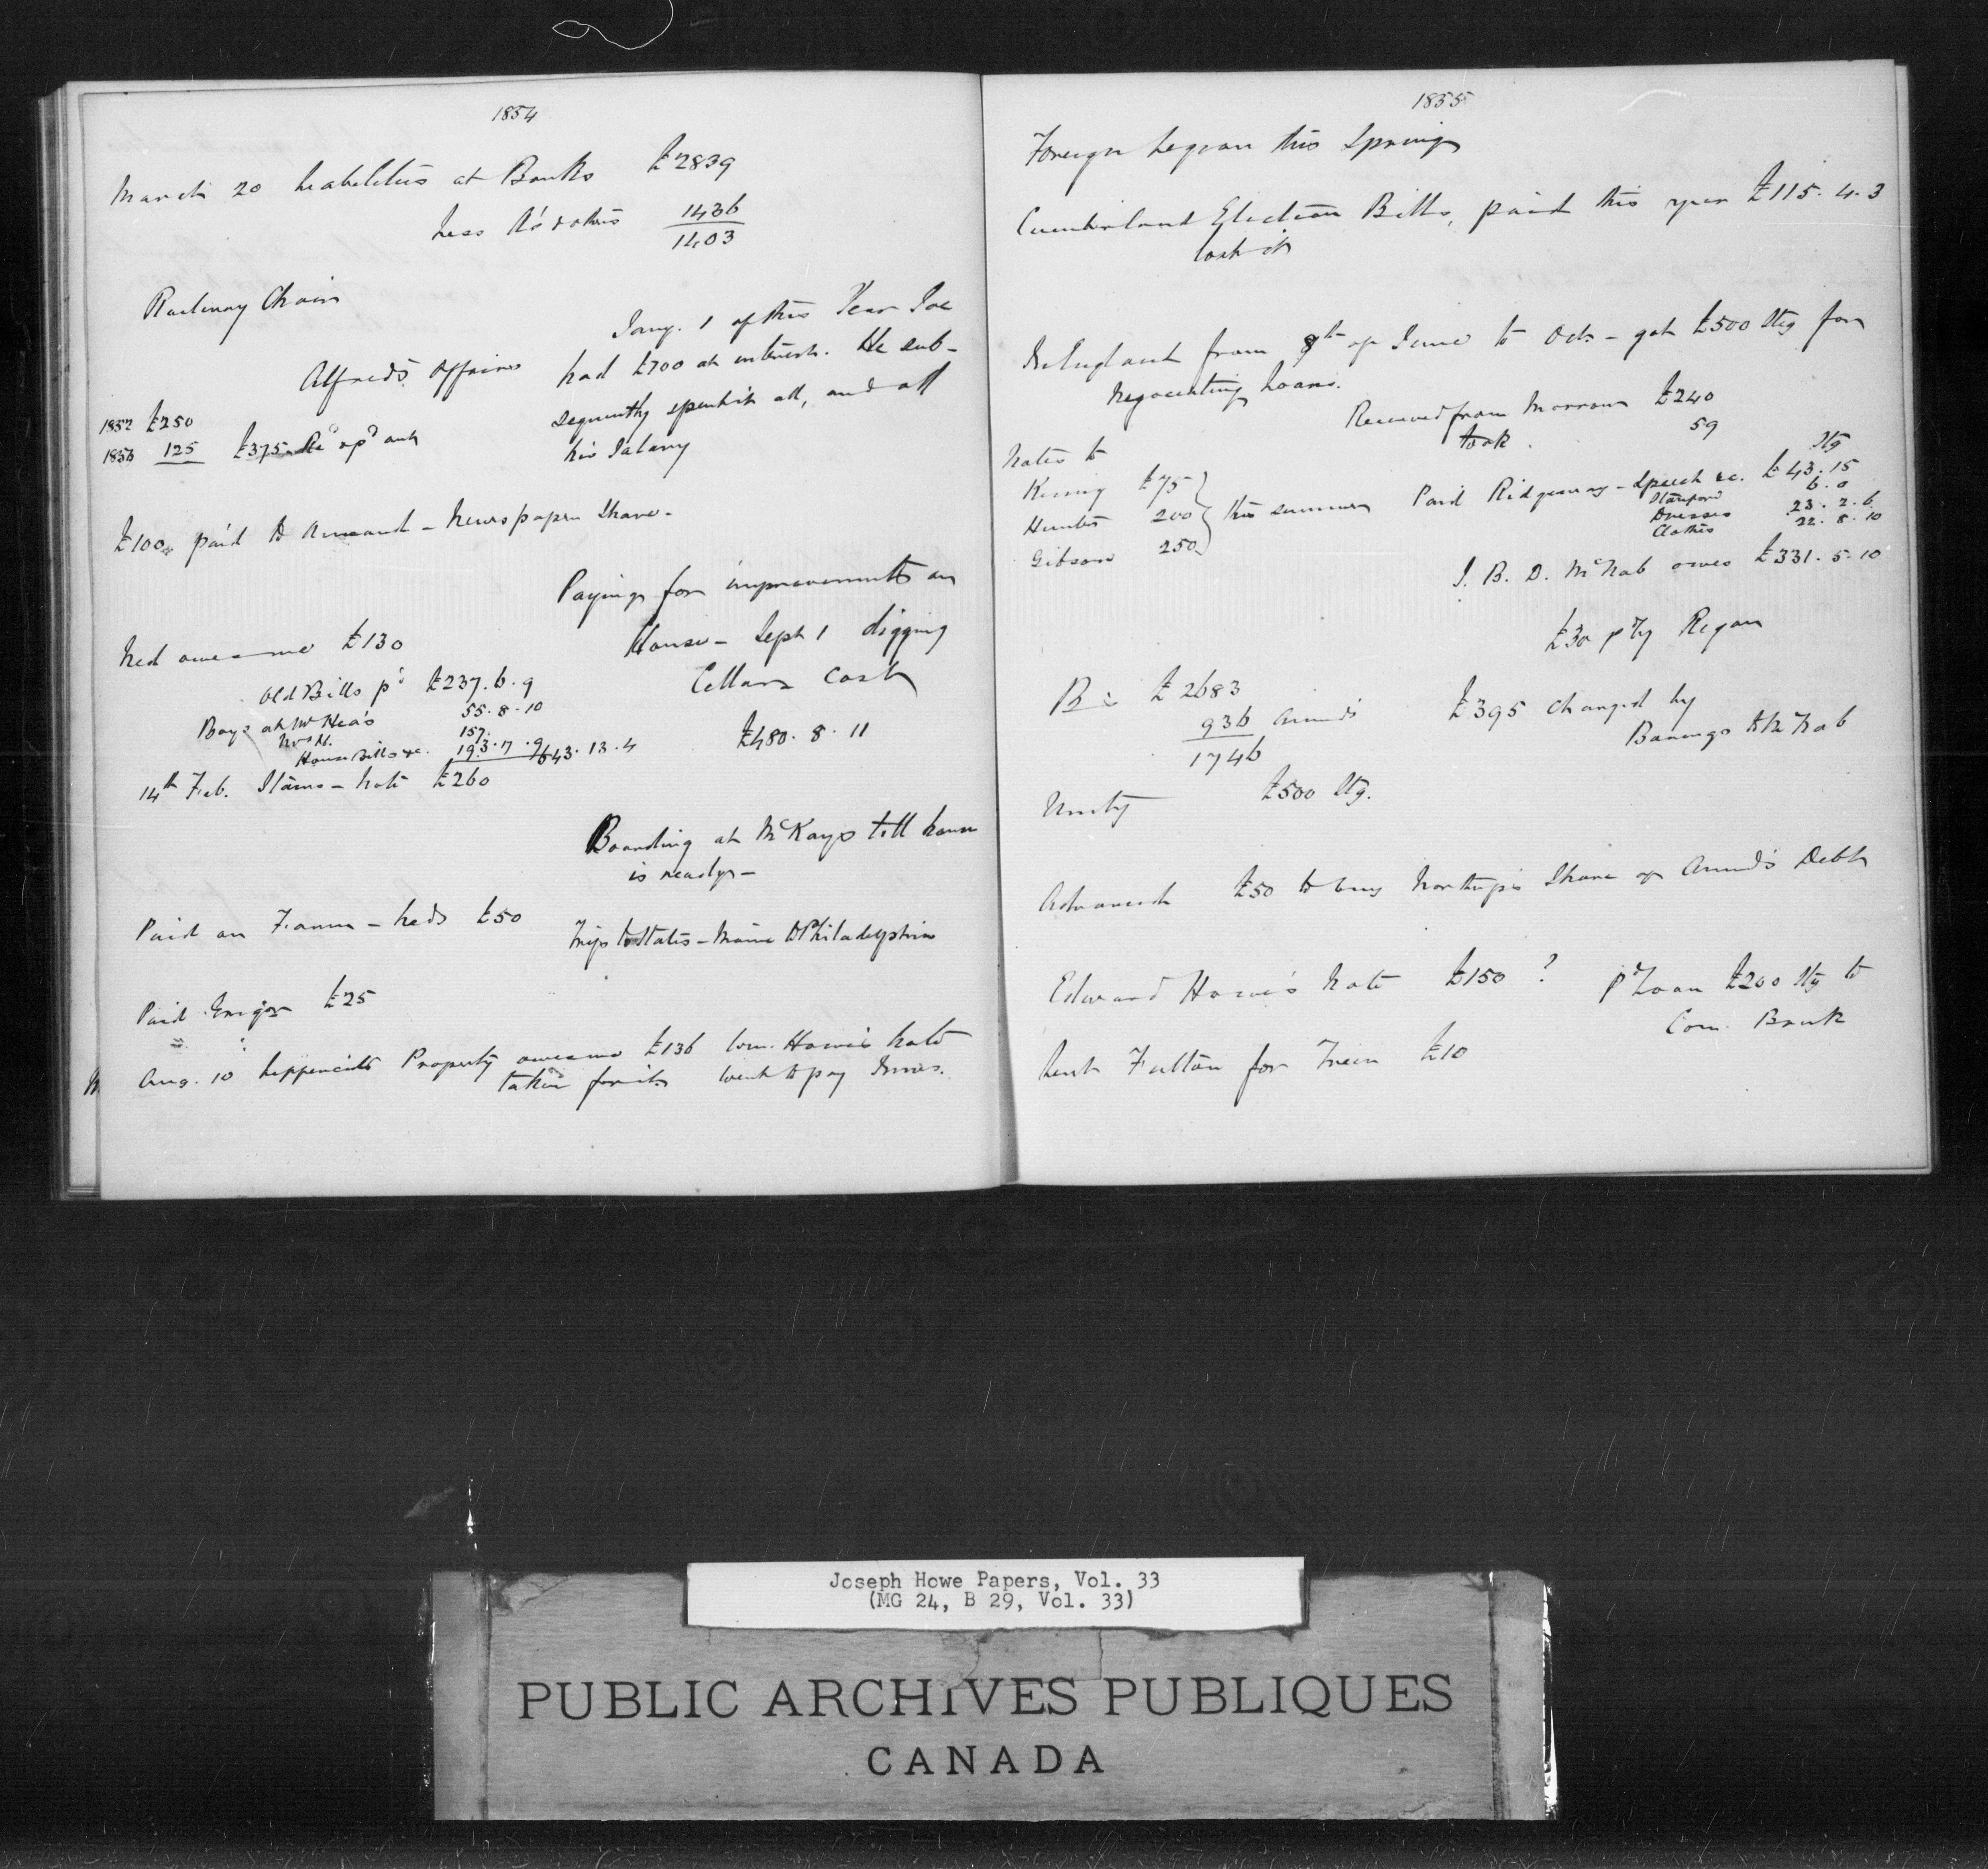 1854
March 20 Liabilities at Banks £2839
Less A's & others 1436
1403
Railway Chair
Jany. 1 of this Year Joe
had £700 at interest. He sub-
sequently spent it all, and all
his Salary
Alfred's Affairs
1852 £250
1853 125 £375
£100 paid to Annand - Newspaper Share.
Paying for improvements on
House - Sept 1 digging
Cellars cost
£480. 8. 11
Ned owes me £130
Old Bills pd £237. 6. 9
Boys at McHea's 55. 8. 10
Mrs H. 157.
House Bills &c. 193. 17. 9 643. 13. 4
14th Feb. Note £260
Boarding at McKays till house
is ready -
Paid on Farm - Neds £50
Trip to States - Maine to Philadelphia
Paid £25
Aug. 10 Property owes me £136 Wm. Howe's note
taken for it went to pay
1855
Foreign Legion this Spring
Cumberland Election Bills, paid this year £115. 4. 3
lost it
In England from 8th of June to Oct - got £500 Stg for
Negociating Loans.
Received from Morrow £240
took 59
Notes to
Kenny £75
Hunter 200 this summer
Gibson 250
Stg
Paid Ridgeway - Speech &c. £43. 15
Stanford 6. 0
Dresses 23. 2. 6
Clothes 22. 8. 10
J. B. D. McNab owes £331. 5. 10
£30 pd by Regan
B £2683
936 Annd's
1746
£395 charged by
Barings to McNab
Unity £500 Stg.
Advanced £50 to buy Northup's Share of Annd's Debt
Edward Howe's Note £150 ?
pd Loan £200 Stg to
Com. Bank
Lent Fulton for £10
Joseph Howe Papers, Vol. 33
(MG 24, B 29, Vol. 33)
PUBLIC ARCHIVES PUBLIQUES
CANADA